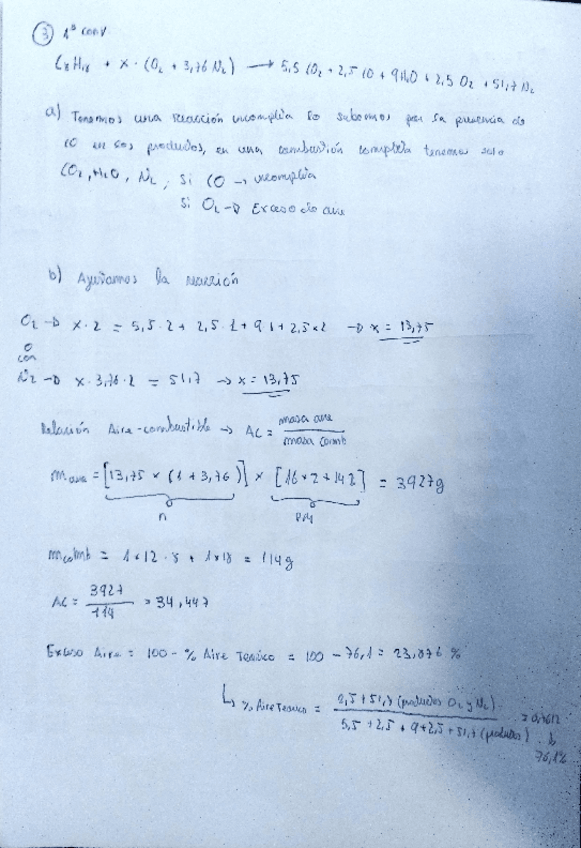 3 1ª conv
C₈H₁₈ + x · (O₂ + 3,76 N₂) → 5,5 CO₂ + 2,5 CO + 9 H₂O + 2,5 O₂ + 51,7 N₂
a) Tenemos una reacción incompleta lo sabemos por la presencia de
CO en los productos, en una combustión completa tenemos solo
CO₂, H₂O, N₂, Si CO → incompleta
Si O₂ → Exceso de aire
b) Ajustamos la reacción
O₂ → x · 2 = 5,5 · 2 + 2,5 · 1 + 9 · 1 + 2,5 × 2 → x = 13,75
o
con
N₂ → x · 3,76 · 2 = 51,7 → x = 13,75
Relación Aire-combustible → AC = masa aire / masa comb
m aire = [13,75 × (1 + 3,76)] × [16 × 2 + 14 2] = 3927g
n PM
m comb = 1 × 12 · 8 + 1 × 18 = 114g
AC = 3927 / 114 = 34,447
Exceso Aire = 100 - % Aire Teórico = 100 - 76,1 = 23,876 %
↳ % Aire Teórico = 5,5 + 51,7 (productos O₂ y N₂) / 5,5 + 2,5 + 9 + 2,5 + 51,7 (productos) = 0,7612
↓
76,1%